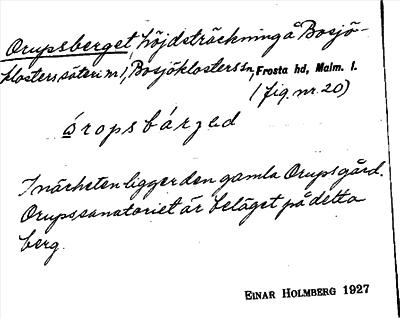 Orupsberget, höjdsträckning å Bosjö-
klosters säteri nr 1, Bosjöklosters sn, Frosta hd, Malm. l.
(fig. nr. 20)
òropsbárjed
I närheten ligger den gamla Orupsgård.
Orupssanatoriet är beläget på detta
berg.
EINAR HOLMBERG 1927